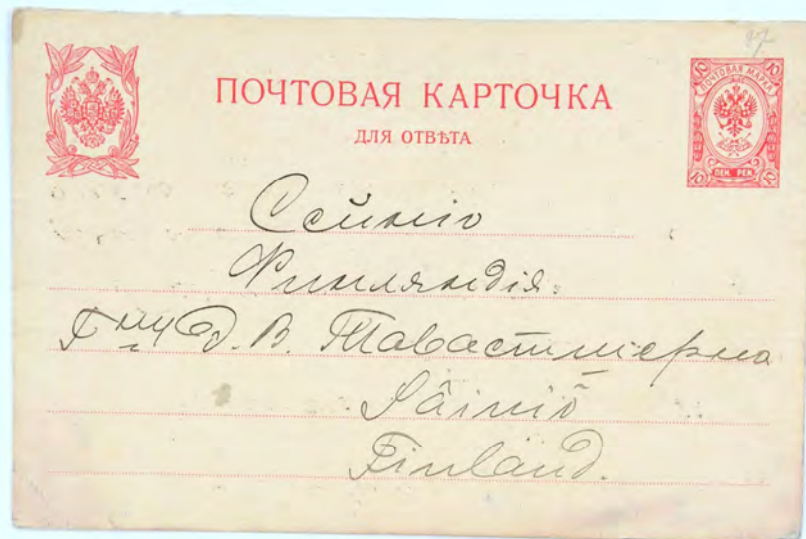 97
ПОЧТОВАЯ КАРТОЧКА
ДЛЯ ОТВѢТА
10 10
ПОЧТОВАЯ МАРКА
10 ПЕН. PEN. 10
Сейніо
Финляндія.
Г-ну Э. В. Тавастшерна
Säiniö
Finland.